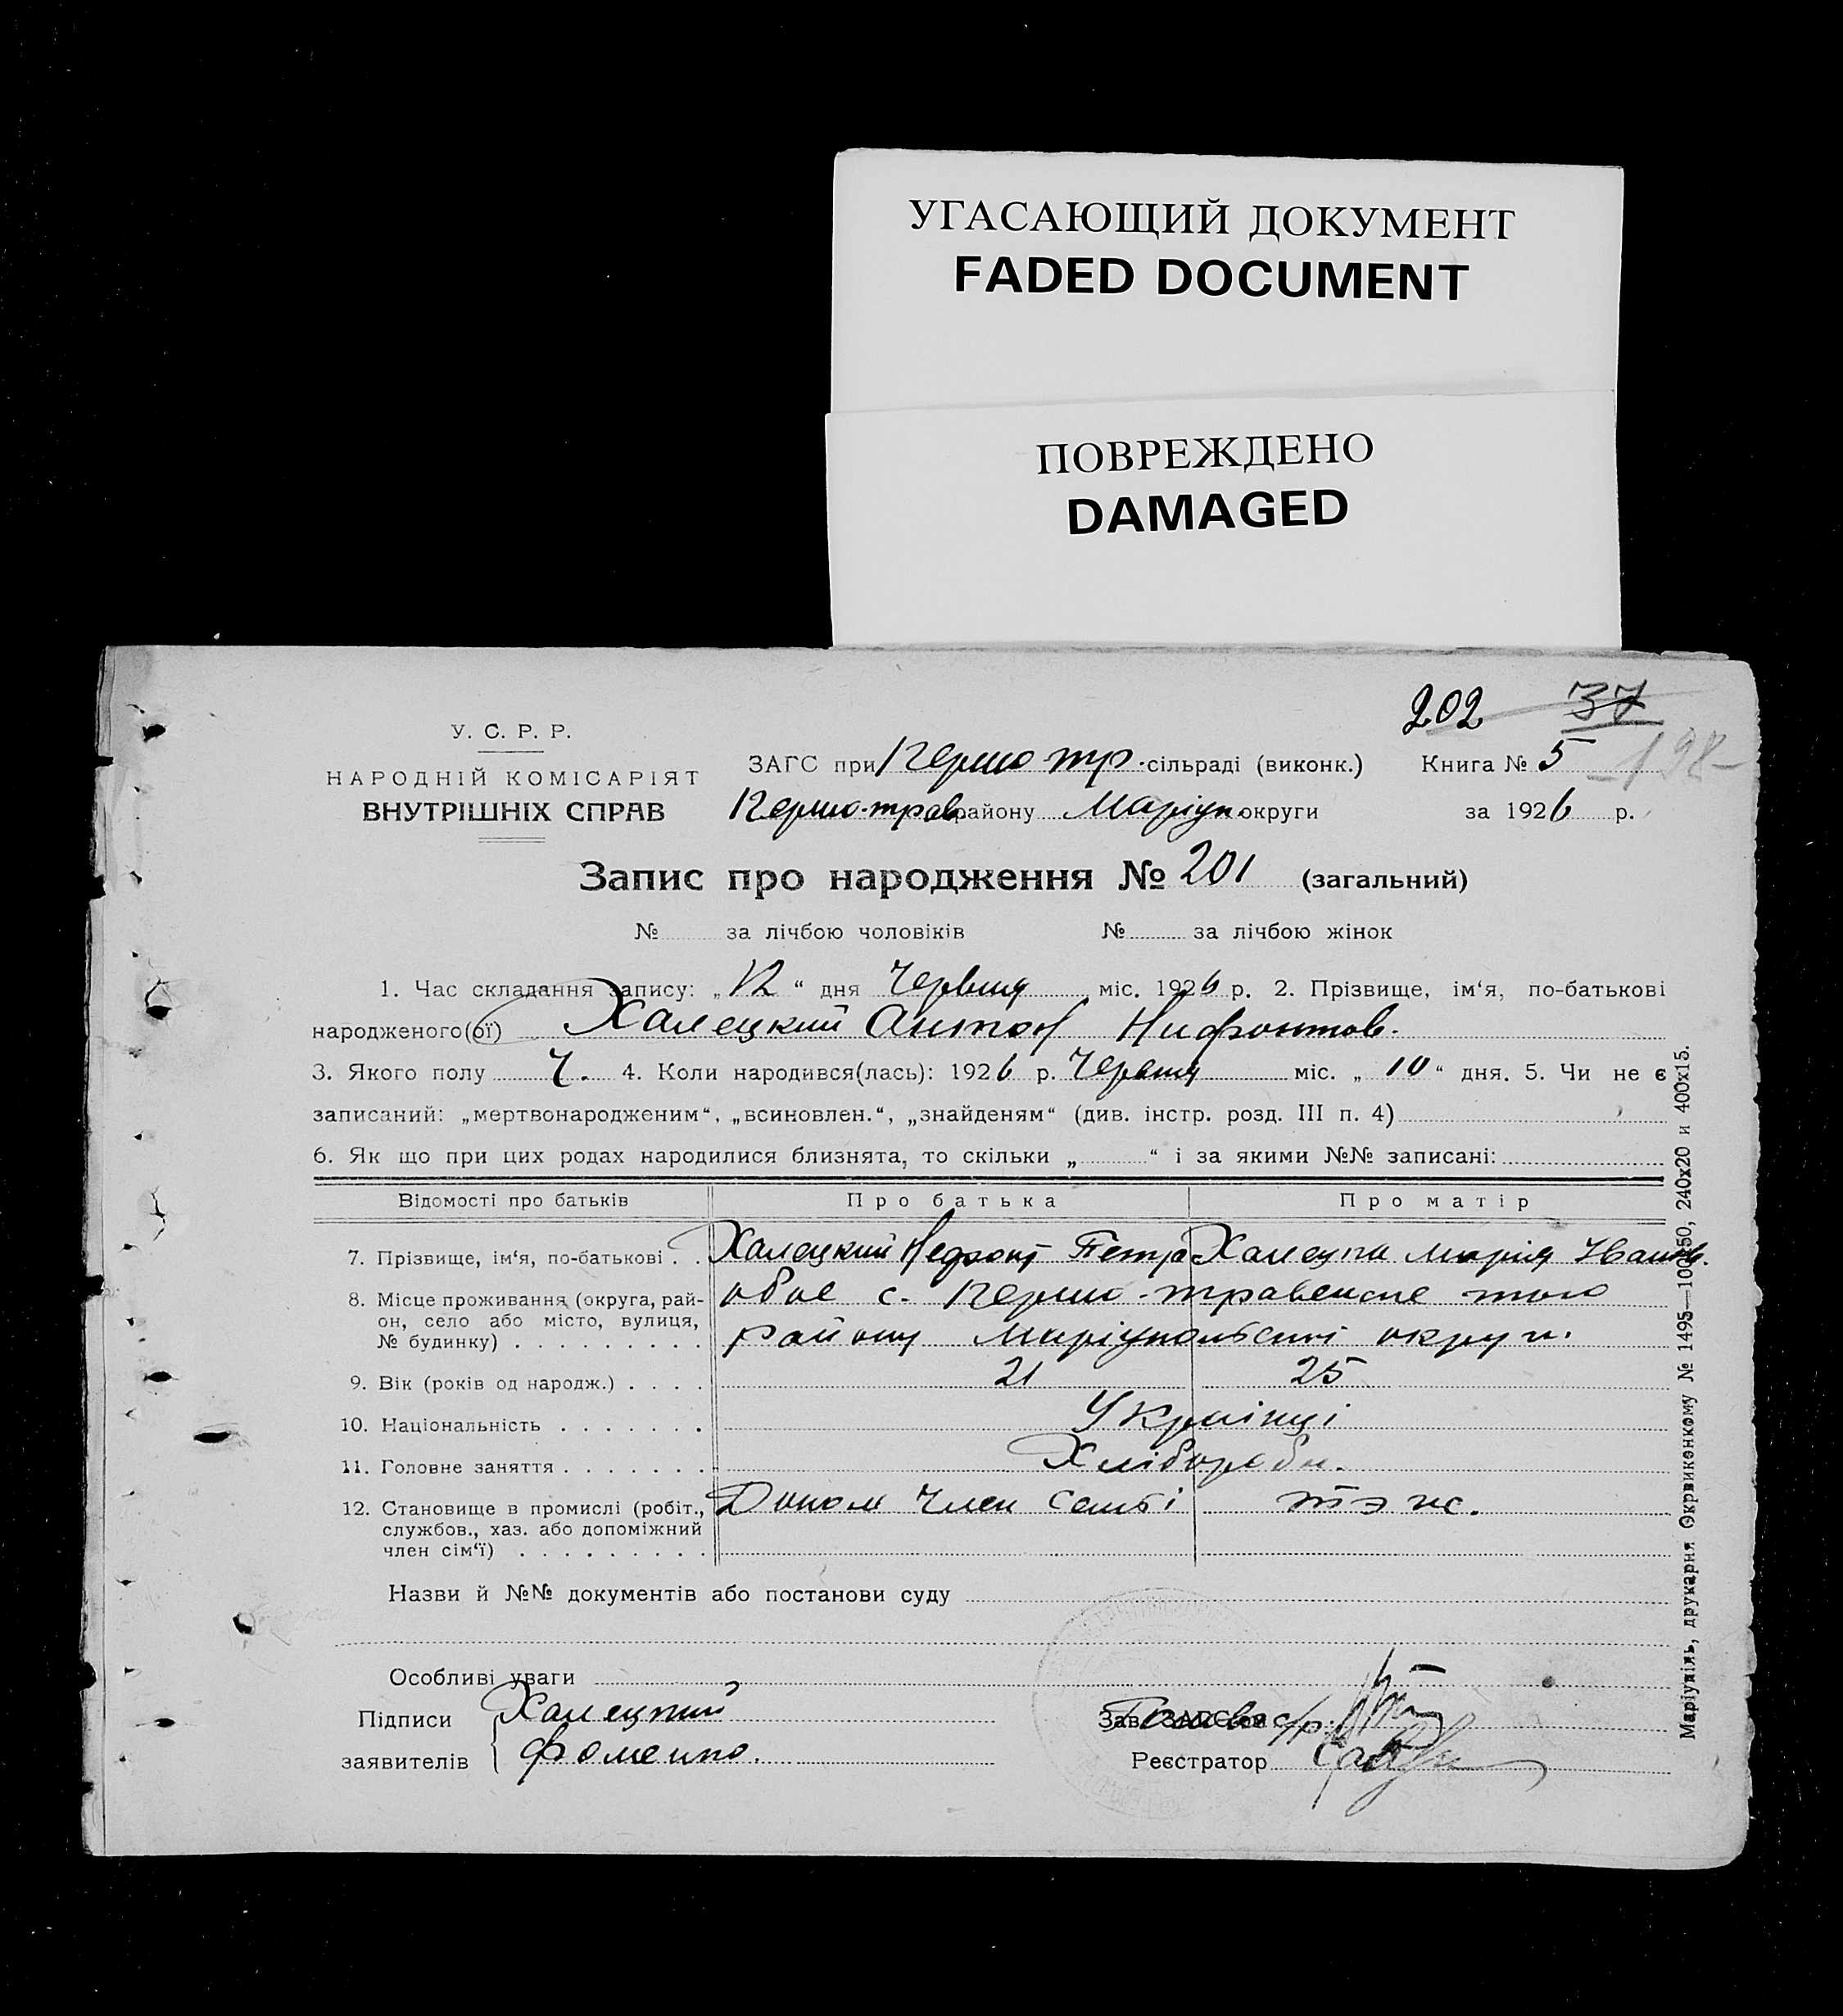 УГАСАЮЩИЙ ДОКУМЕНТ
FADED DOCUMENT
ПОВРЕЖДЕНО
DAMAGED
202 37
У. С. Р. Р.
НАРОДНІЙ КОМІСАРІЯТ
ВНУТРІШНІХ СПРАВ
ЗАГС при Першо тр. сільраді (виконк.) Книга № 5 -198-
Першо-трав. району Маріуп. округи за 1926 р.
Запис про народження № 201 (загальний)
№ за лічбою чоловіків № за лічбою жінок
1. Час складання запису: „12“ дня Червня міс. 1926 р. 2. Прізвище, ім‘я, по-батькові
народженого(ої) Халецкий Антон Нифонтов.
3. Якого полу Ч. 4. Коли народився(лась): 1926 р. Червня міс. „10“ дня. 5. Чи не є
записаний: „мертвонародженим“, „всиновлен.“, „знайденям“ (див. інстр. розд. III п. 4)
6. Як що при цих родах народилися близнята, то скільки „ “ і за якими №№ записані:
Відомості про батьків Про батька Про матір
7. Прізвище, ім‘я, по-батькові . . Халецкий Нефонт Петро Халецка Марія Іванов.
8. Місце проживання (округа, рай-
он, село або місто, вулиця,
№ будинку) . . . . . . . . .
обоє с. Першо-травенсне того
району Маріупольскої округи.
9. Вік (років од народж.) . . . . 21 25
10. Національність . . . . . . . Українці
11. Головне заняття . . . . . . . Хлібороби.
12. Становище в промислі (робіт., службов., хаз. або допоміжний
член сім‘ї) . . . . . . . . .
Допом член семьі тэж.
Назви й №№ документів або постанови суду
Особливі уваги
Підписи Халецкий
заявителів Фоменко.
Зав. ЗАГС‘ом Голова с/р.
Реєстратор
Маріупіль, друкарня Окрвиконкому № 1495—100150, 240x20 и 400x15.